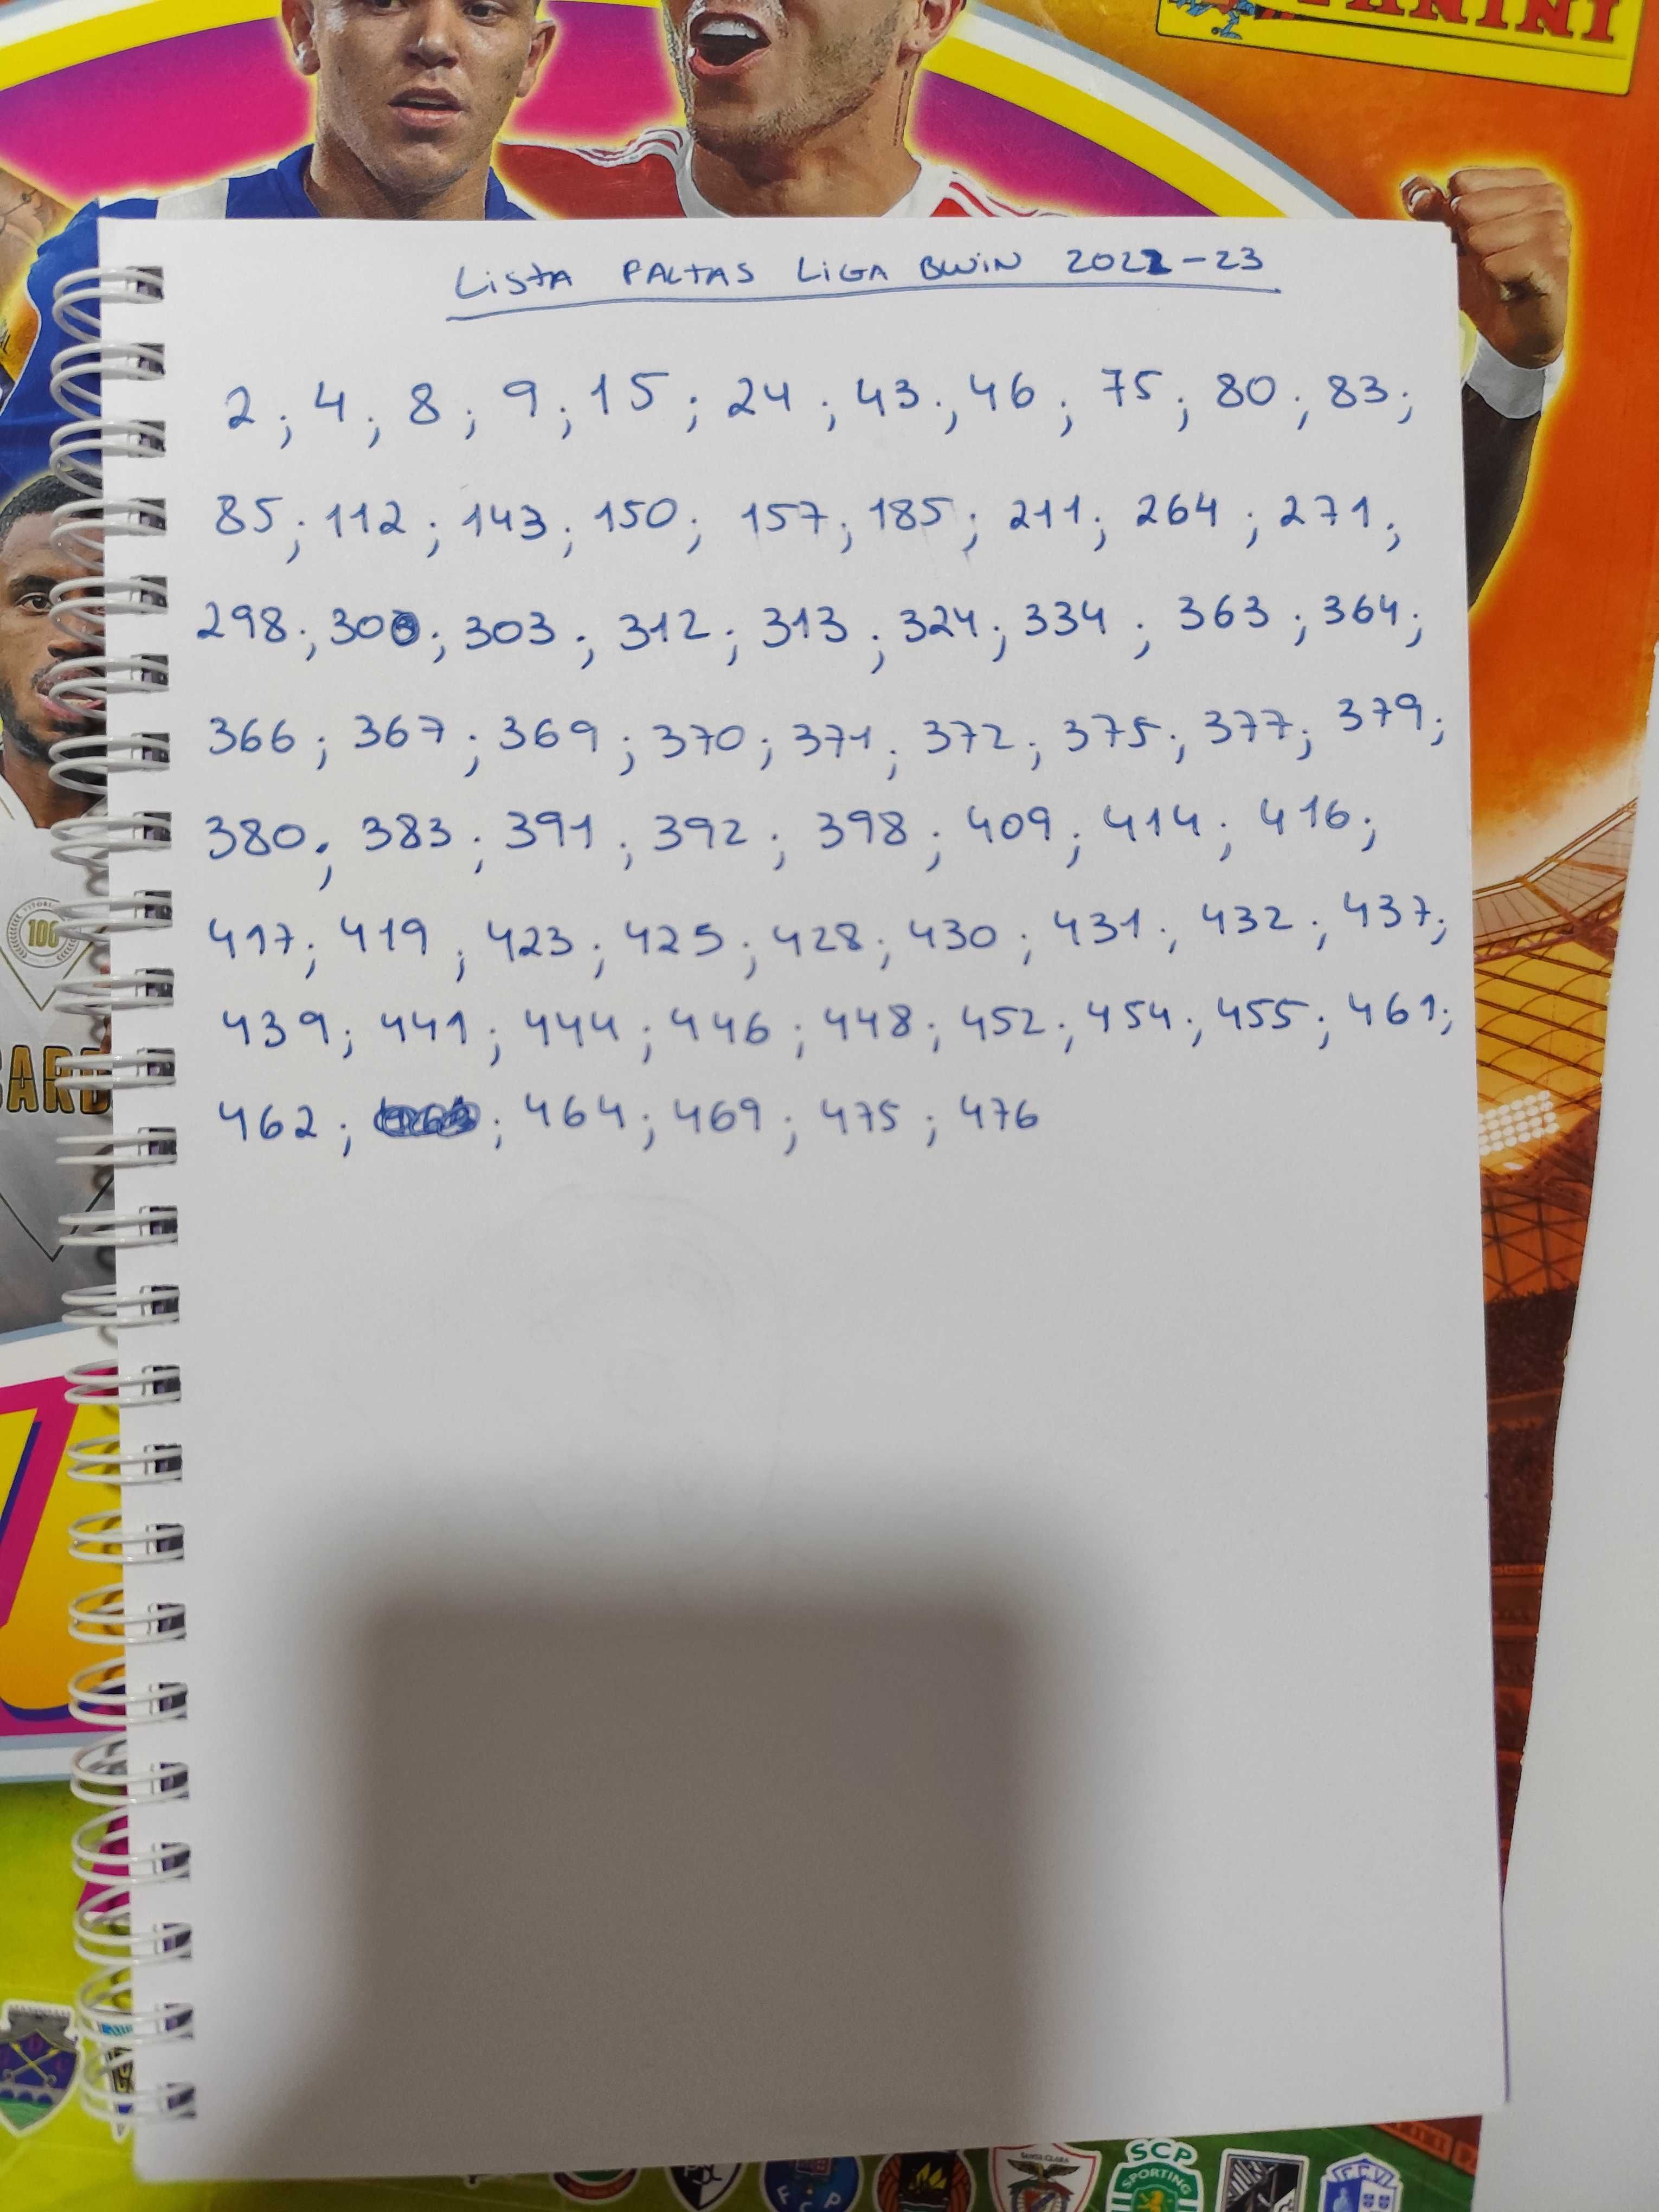 PANINI
LISTA FALTAS LIGA BWIN 2022-23
2; 4; 8; 9; 15; 24; 43; 46; 75; 80; 83;
85; 112; 143; 150; 157; 185; 211; 264; 271;
298; 300; 303; 312; 313; 324; 334; 363; 364;
366; 367; 369; 370; 371; 372; 375; 377; 379;
380; 383; 391; 392; 398; 409; 414; 416;
417; 419; 423; 425; 428; 430; 431; 432; 437;
439; 441; 444; 446; 448; 452; 454; 455; 461;
462; ; 464; 469; 475; 476
100
SCP
SPORTING
SANTA CLARA
FCP